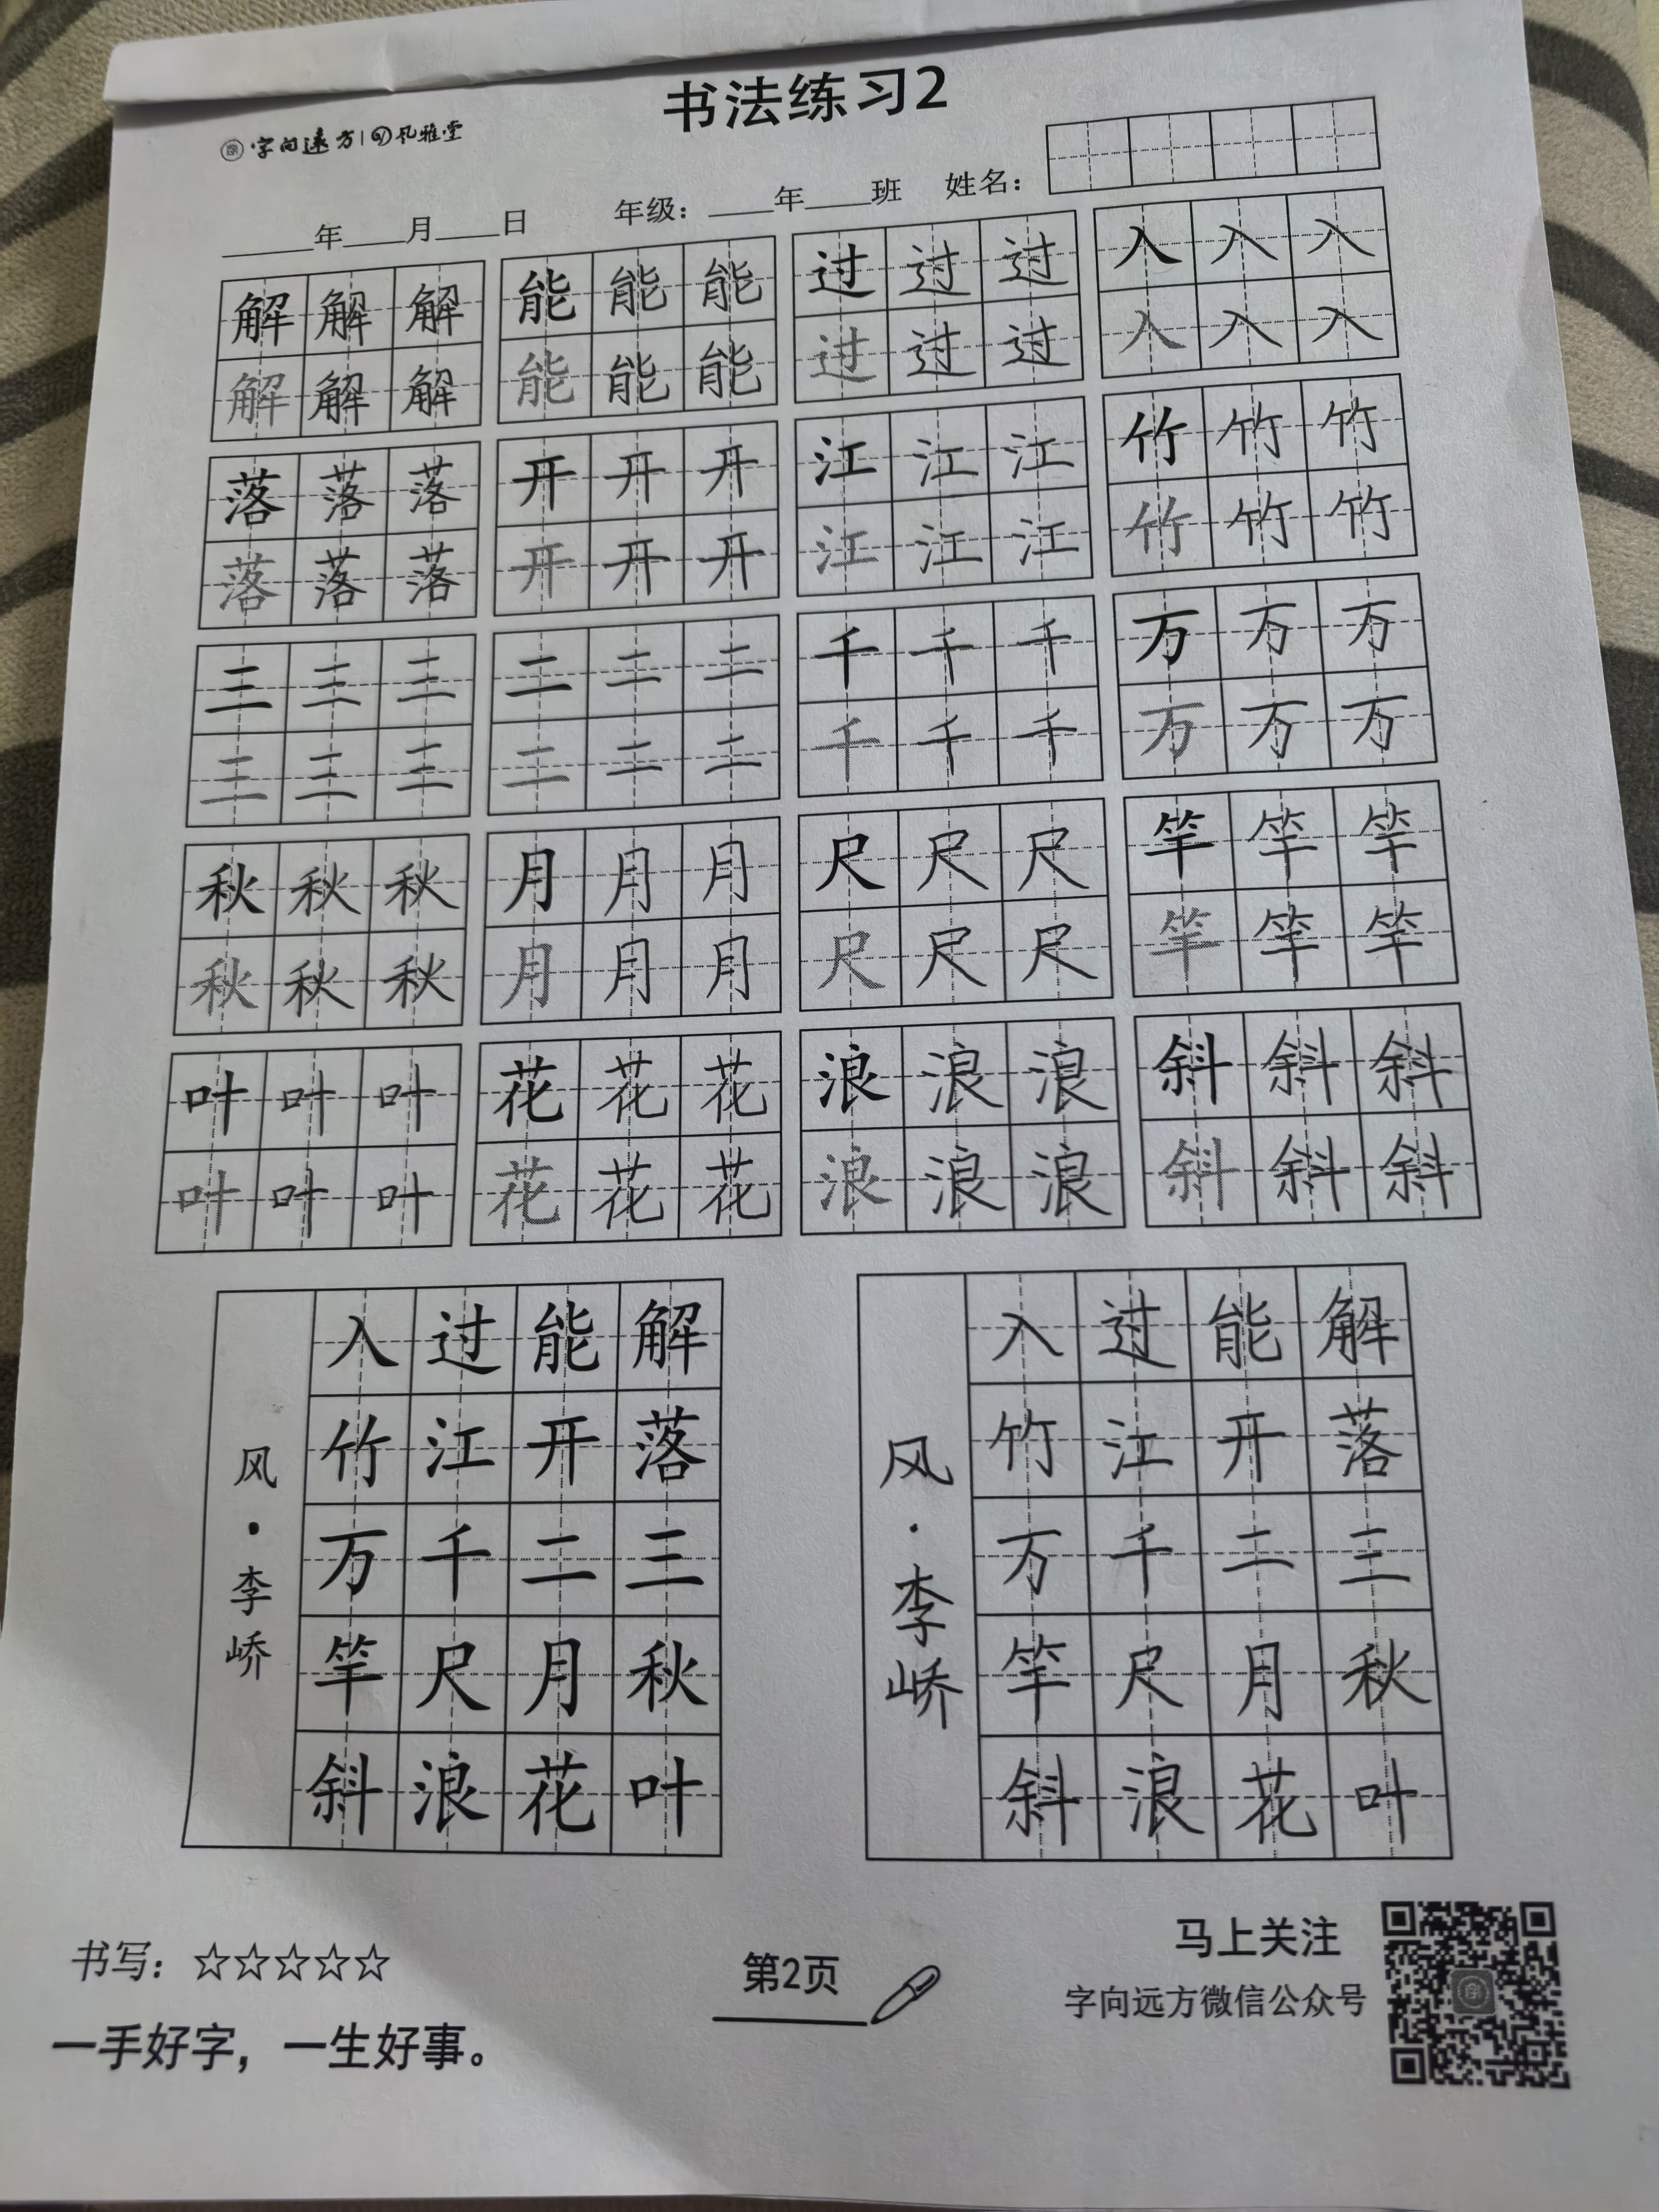 书法练习2
字向远方 风雅堂
年 月 日 年级： 年 班 姓名：
解 解 解 能 能 能 过 过 过 入 入 入
解 解 解 能 能 能 过 过 过 入 入 入
落 落 落 开 开 开 江 江 江 竹 竹 竹
落 落 落 开 开 开 江 江 江 竹 竹 竹
三 三 三 二 二 二 千 千 千 万 万 万
三 三 三 二 二 二 千 千 千 万 万 万
秋 秋 秋 月 月 月 尺 尺 尺 竿 竿 竿
秋 秋 秋 月 月 月 尺 尺 尺 竿 竿 竿
叶 叶 叶 花 花 花 浪 浪 浪 斜 斜 斜
叶 叶 叶 花 花 花 浪 浪 浪 斜 斜 斜
解落三秋叶
能开二月花
过江千尺浪
入竹万竿斜
风·李峤
解落三秋叶
能开二月花
过江千尺浪
入竹万竿斜
风·李峤
书写：☆☆☆☆☆
一手好字，一生好事。
第2页
马上关注
字向远方微信公众号